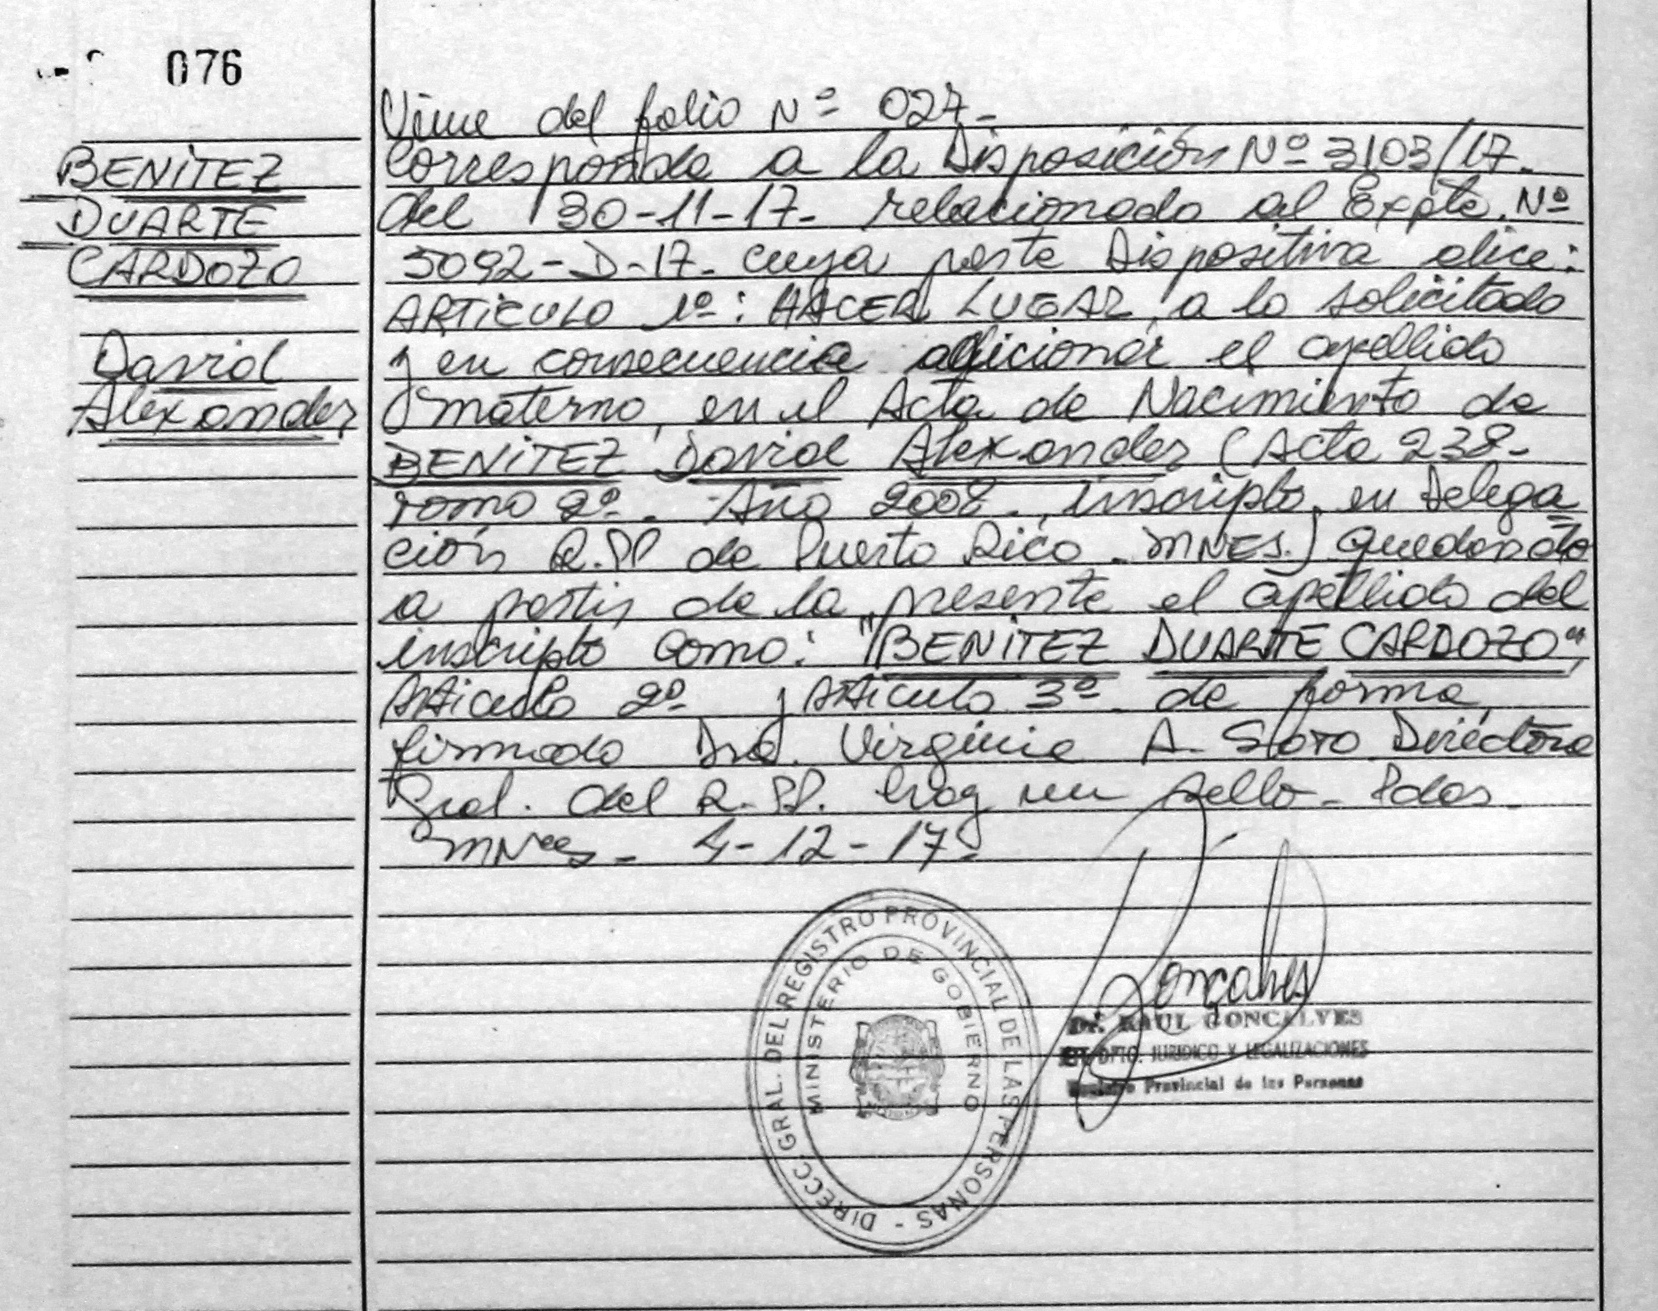 076
BENITEZ
DUARTE
CARDOZO
David
Alexander
Viene del folio Nº 027-
Corresponde a la Disposición Nº 3103/17-
del 30-11-17- relacionado al Expte. Nº
5092-D-17- cuya parte Dispositiva dice:
ARTICULO 1º: HACER LUGAR, a lo solicitado
y en consecuencia adicionar el apellido
materno, en el Acta de Nacimiento de
BENITEZ David Alexander (Acta 238-
Tomo 2º- Año 2008-, inscripto, en Delega
ción R.PP de Puerto Rico - MNES.) quedando
a partir de la presente el apellido del
inscripto como: "BENITEZ DUARTE CARDOZO",
Articulo 2º y Articulo 3º de forma,
firmado Dra. Virginia A. Soto Directora
Gral. del R.PP. hay un sello- Pdas-
MNes- 4-12-17-
DIRECC. GRAL. DEL REGISTRO PROVINCIAL DE LAS PERSONAS -
MINISTERIO DE GOBIERNO
Goncalves
Dr. RAUL GONCALVES
DPTO. JURIDICO Y LEGALIZACIONES
Registro Provincial de las Personas